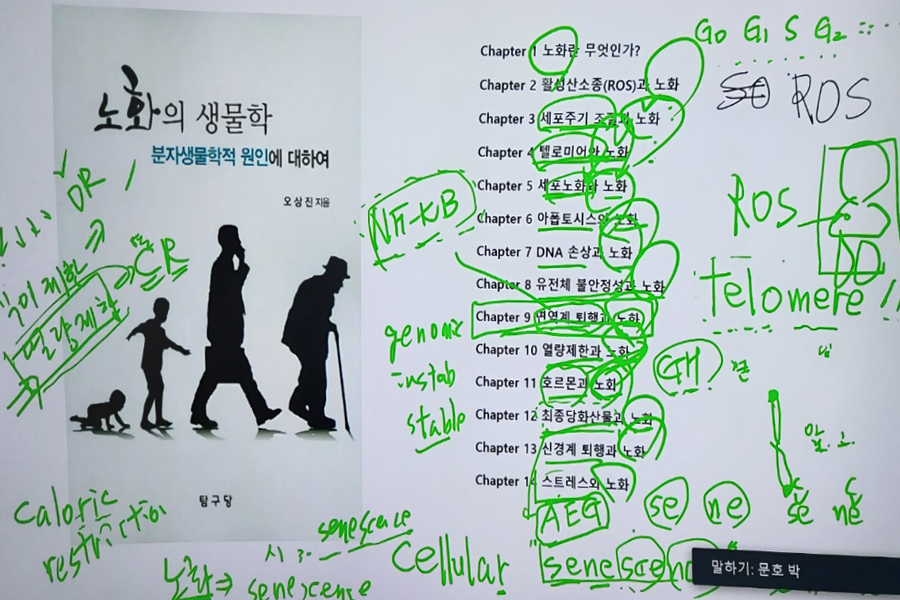 노화의 생물학
분자생물학적 원인에 대하여
오상진 지음
탐구당
Chapter 1 노화란 무엇인가?
Chapter 2 활성산소종(ROS)과 노화
Chapter 3 세포주기 조절과 노화
Chapter 4 텔로미어와 노화
Chapter 5 세포노화와 노화
Chapter 6 아폽토시스와 노화
Chapter 7 DNA 손상과 노화
Chapter 8 유전체 불안정성과 노화
Chapter 9 면역계 퇴행과 노화
Chapter 10 열량제한과 노화
Chapter 11 호르몬과 노화
Chapter 12 최종당화산물과 노화
Chapter 13 신경계 퇴행과 노화
Chapter 14 스트레스와 노화
G0 G1 S G2
ROS
ROS
telomere !!
DR
CR
식이제한
열량제한
NF-KB
genomic
instab
stable
GH
AEG
se ne
se ne
caloric
restriction
senescence
노화 ⇒ senescence
cellular
"senescen
말하기: 문호 박